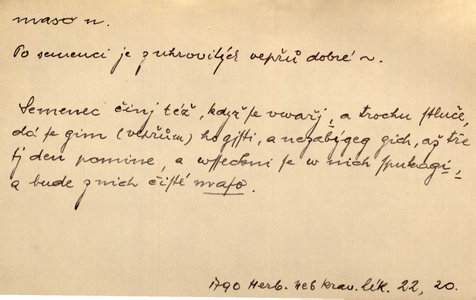 maso n.
Po semenci je z uhrovitých vepřů dobré ~.
Semenec činj též, když se vwařj, a trochu stluče,
dá se gim (vepřům) ho gisti, a nezabýgeg gich, až tře
tj den pomine, a wssechni se w nich spukagí,
a bude z nich čisté maso.
1790 Herb. neb krav. lék. 22, 20.